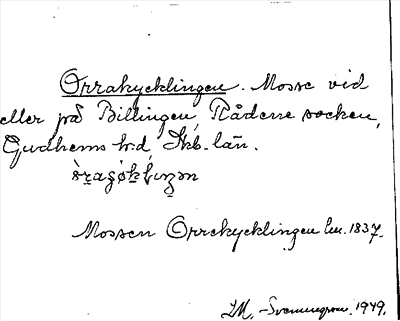 Orrakycklingen. Mosse vid
eller på Billingen, Rådene socken,
Gudhems h:d Skb. län.
Mossen Orrekycklingen lm. 1837.
I.M. Svenungson 1949.